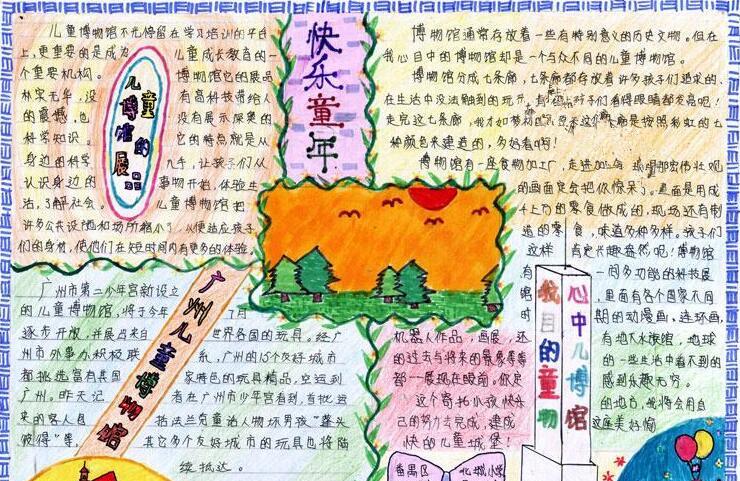 快乐童年
儿童博物馆不光停留在学习培训的平台
上,更重要的是成为
儿童成长教育的一
个重要机构。
博物馆它的展品
没
有高科技带给人
的震撼,也
没有展示深奥的
科学知识。
它的特点就是从
身边的科学
儿手,让孩子们从
认识身边的
事物开始,体验生
活,了解社会。
儿童博物馆把
许多公共设施和场所缩小了,从使适应孩子
们的身材,使他们在短时间内有更多的体验。
儿童博物馆的展品
博物馆通常存放着一些有特别意义的历史文物。但在
我心目中的博物馆却是一个与众不同的儿童博物馆。
博物馆分成七条廊,七条廊都存放着许多孩子们追求的、
在生活中没法触到的玩具
孩子们看得眼睛都发亮吧!
走完这七条廊,我才
是按照彩虹的七
种颜色来建造的,多好看啊!
博物馆有一座食物加工厂,走进加工
那宏伟壮观
的画面定会把你惊呆了。里面是用成
千上万的零食做成的,现场还有制
造的零食,味道多种多样。孩子们
这样
肯定兴趣盎然吧!博物馆
有
一间多功能的科技展
馆
里面有各个国家不同
时
期的动漫画,连环画,
机器人作品,画展,还
有地下水族馆,地球
的过去与将来的景象等等
的一些生活中看不到的
都一展现在眼前,你定
感到乐趣无穷。
这个寄托小孩快乐
的地方,我将会用自
己的努力去完成,建成
这座美好愉
快的儿童城堡!
心中儿博馆
我目的童物
广州儿童博物馆
广州市第二少年宫新设立
的儿童博物馆,将于今年
7月
逐步开放,并展出来自
世界各国的玩具。经广
州市外事办积极联
系,广州的15个友好城市
都挑选富有其国
家特色的玩具精品,空运到
广州。昨天记
者在广州市少年宫看到,首批运
来的客人包
括法兰克童话人物坏男孩“蓬头
彼得”等,
其它多个友好城市的玩具也将陆
续抵达。
番禺区
北城小学